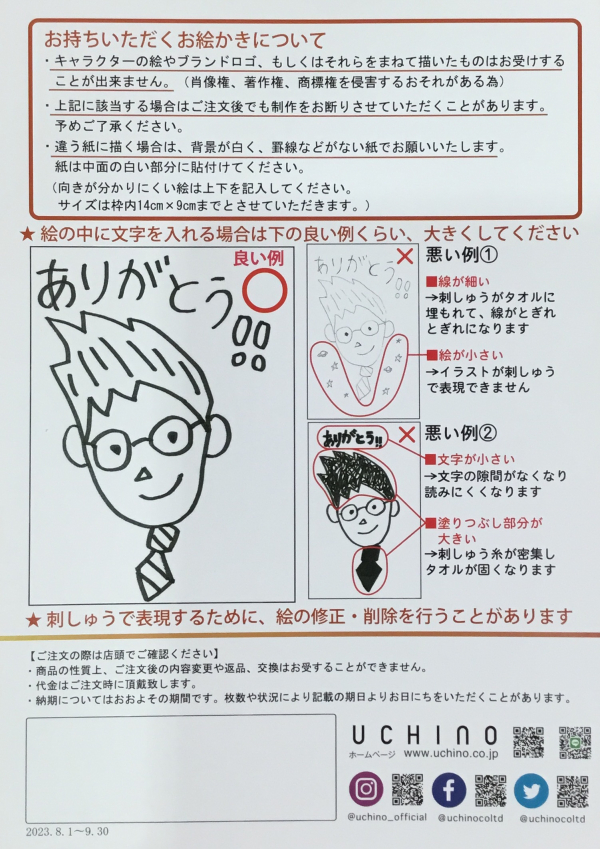 お持ちいただくお絵かきについて
・キャラクターの絵やブランドロゴ、もしくはそれらをまねて描いたものはお受けする
ことが出来ません。（肖像権、著作権、商標権を侵害するおそれがある為）
・上記に該当する場合はご注文後でも制作をお断りさせていただくことがあります。
予めご了承ください。
・違う紙に描く場合は、背景が白く、罫線などがない紙でお願いいたします。
紙は中面の白い部分に貼付けてください。
（向きが分かりにくい絵は上下を記入してください。
サイズは枠内14cm×9cmまでとさせていただきます。）
★ 絵の中に文字を入れる場合は下の良い例くらい、大きくしてください
良い例
ありがとう!!
ありがとう!!
悪い例①
■線が細い
→刺しゅうがタオルに
埋もれて、線がとぎれ
とぎれになります
■絵が小さい
→イラストが刺しゅう
で表現できません
ありがとう!!
悪い例②
■文字が小さい
→文字の隙間がなくなり
読みにくくなります
■塗りつぶし部分が
大きい
→刺しゅう糸が密集し
タオルが固くなります
★ 刺しゅうで表現するために、絵の修正・削除を行うことがあります
【ご注文の際は店頭でご確認ください】
・商品の性質上、ご注文後の内容変更や返品、交換はお受することができません。
・代金はご注文時に頂戴致します。
・納期についてはおおよその期間です。枚数や状況により記載の期日よりお日にちをいただくことがあります。
UCHINO
ホームページ www.uchino.co.jp
@uchino_official
@uchinocoltd
@uchinocoltd
2023.8.1～9.30